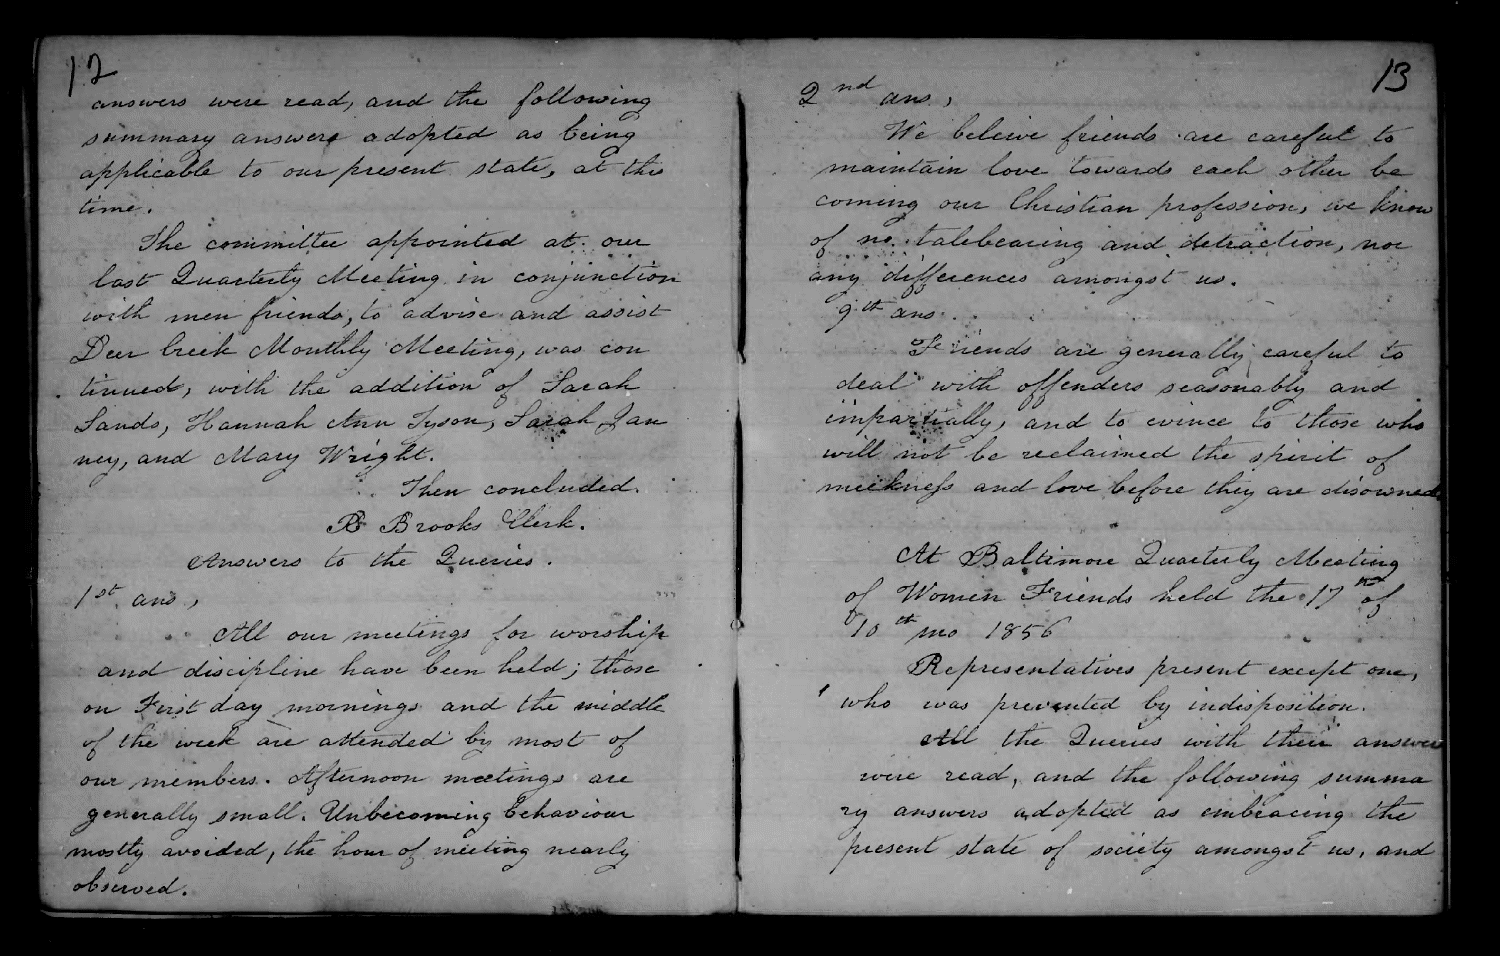 12
answers were read, and the following
summary answers adopted as being
applicable to our present state, at this
time.
The committee appointed at our
last Quarterly Meeting in conjunction
with men friends, to advise and assist
Deer Creek Monthly Meeting, was con
tinued, with the addition of Sarah
Sands, Hannah Ann Tyson, Sarah Jan
ney, and Mary Wright.
Then concluded.
R Brooks Clerk.
Answers to the Queries.
1st ans,
All our meetings for worship
and discipline have been held; those
on First day mornings and the middle
of the week are attended by most of
our members. Afternoon meetings are
generally small. Unbecoming behaviour
mostly avoided, the hour of meeting nearly
observed.
13
2nd ans,
We beleive friends are careful to
maintain love towards each other be
coming our Christian profession, we know
of no talebearing and detraction, nor
any differences amongst us.
9th ans.
Friends are generally careful to
deal with offenders seasonably and
impartially, and to evince to those who
will not be reclaimed the spirit of
meekness and love before they are disowned
At Baltimore Quarterly Meeting
of Women Friends held the 17 of
10th mo 1856
Representatives present except one,
who was prevented by indisposition.
All the Queries with their answers
were read, and the following summa
ry answers adopted as embracing the
present state of society amongst us, and